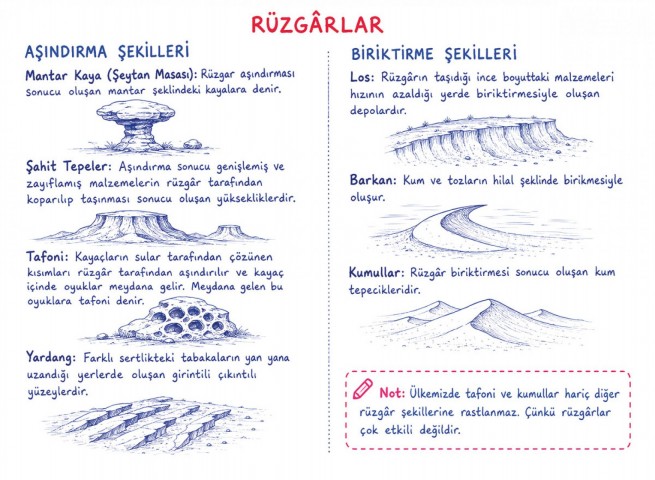 RÜZGÂRLAR
AŞINDIRMA ŞEKİLLERİ
Mantar Kaya (Şeytan Masası): Rüzgar aşındırması
sonucu oluşan mantar şeklindeki kayalara denir.
Şahit Tepeler: Aşındırma sonucu genişlemiş ve
zayıflamış malzemelerin rüzgâr tarafından
koparılıp taşınması sonucu oluşan yüksekliklerdir.
Tafoni: Kayaçların sular tarafından çözünen
kısımları rüzgâr tarafından aşındırılır ve kayaç
içinde oyuklar meydana gelir. Meydana gelen bu
oyuklara tafoni denir.
Yardang: Farklı sertlikteki tabakaların yan yana
uzandığı yerlerde oluşan girintili çıkıntılı
yüzeylerdir.
BİRİKTİRME ŞEKİLLERİ
Los: Rüzgârın taşıdığı ince boyuttaki malzemeleri
hızının azaldığı yerde biriktirmesiyle oluşan
depolardır.
Barkan: Kum ve tozların hilal şeklinde birikmesiyle
oluşur.
Kumullar: Rüzgâr biriktirmesi sonucu oluşan kum
tepecikleridir.
Not: Ülkemizde tafoni ve kumullar hariç diğer
rüzgâr şekillerine rastlanmaz. Çünkü rüzgârlar
çok etkili değildir.